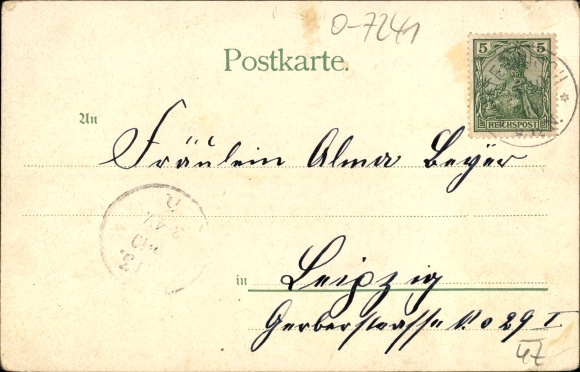 O-7241
Postkarte.
5 5
REICHSPOST
An
Fräulein Alma Beyer
in Leipzig
Gerberstrasse No 29 I
47